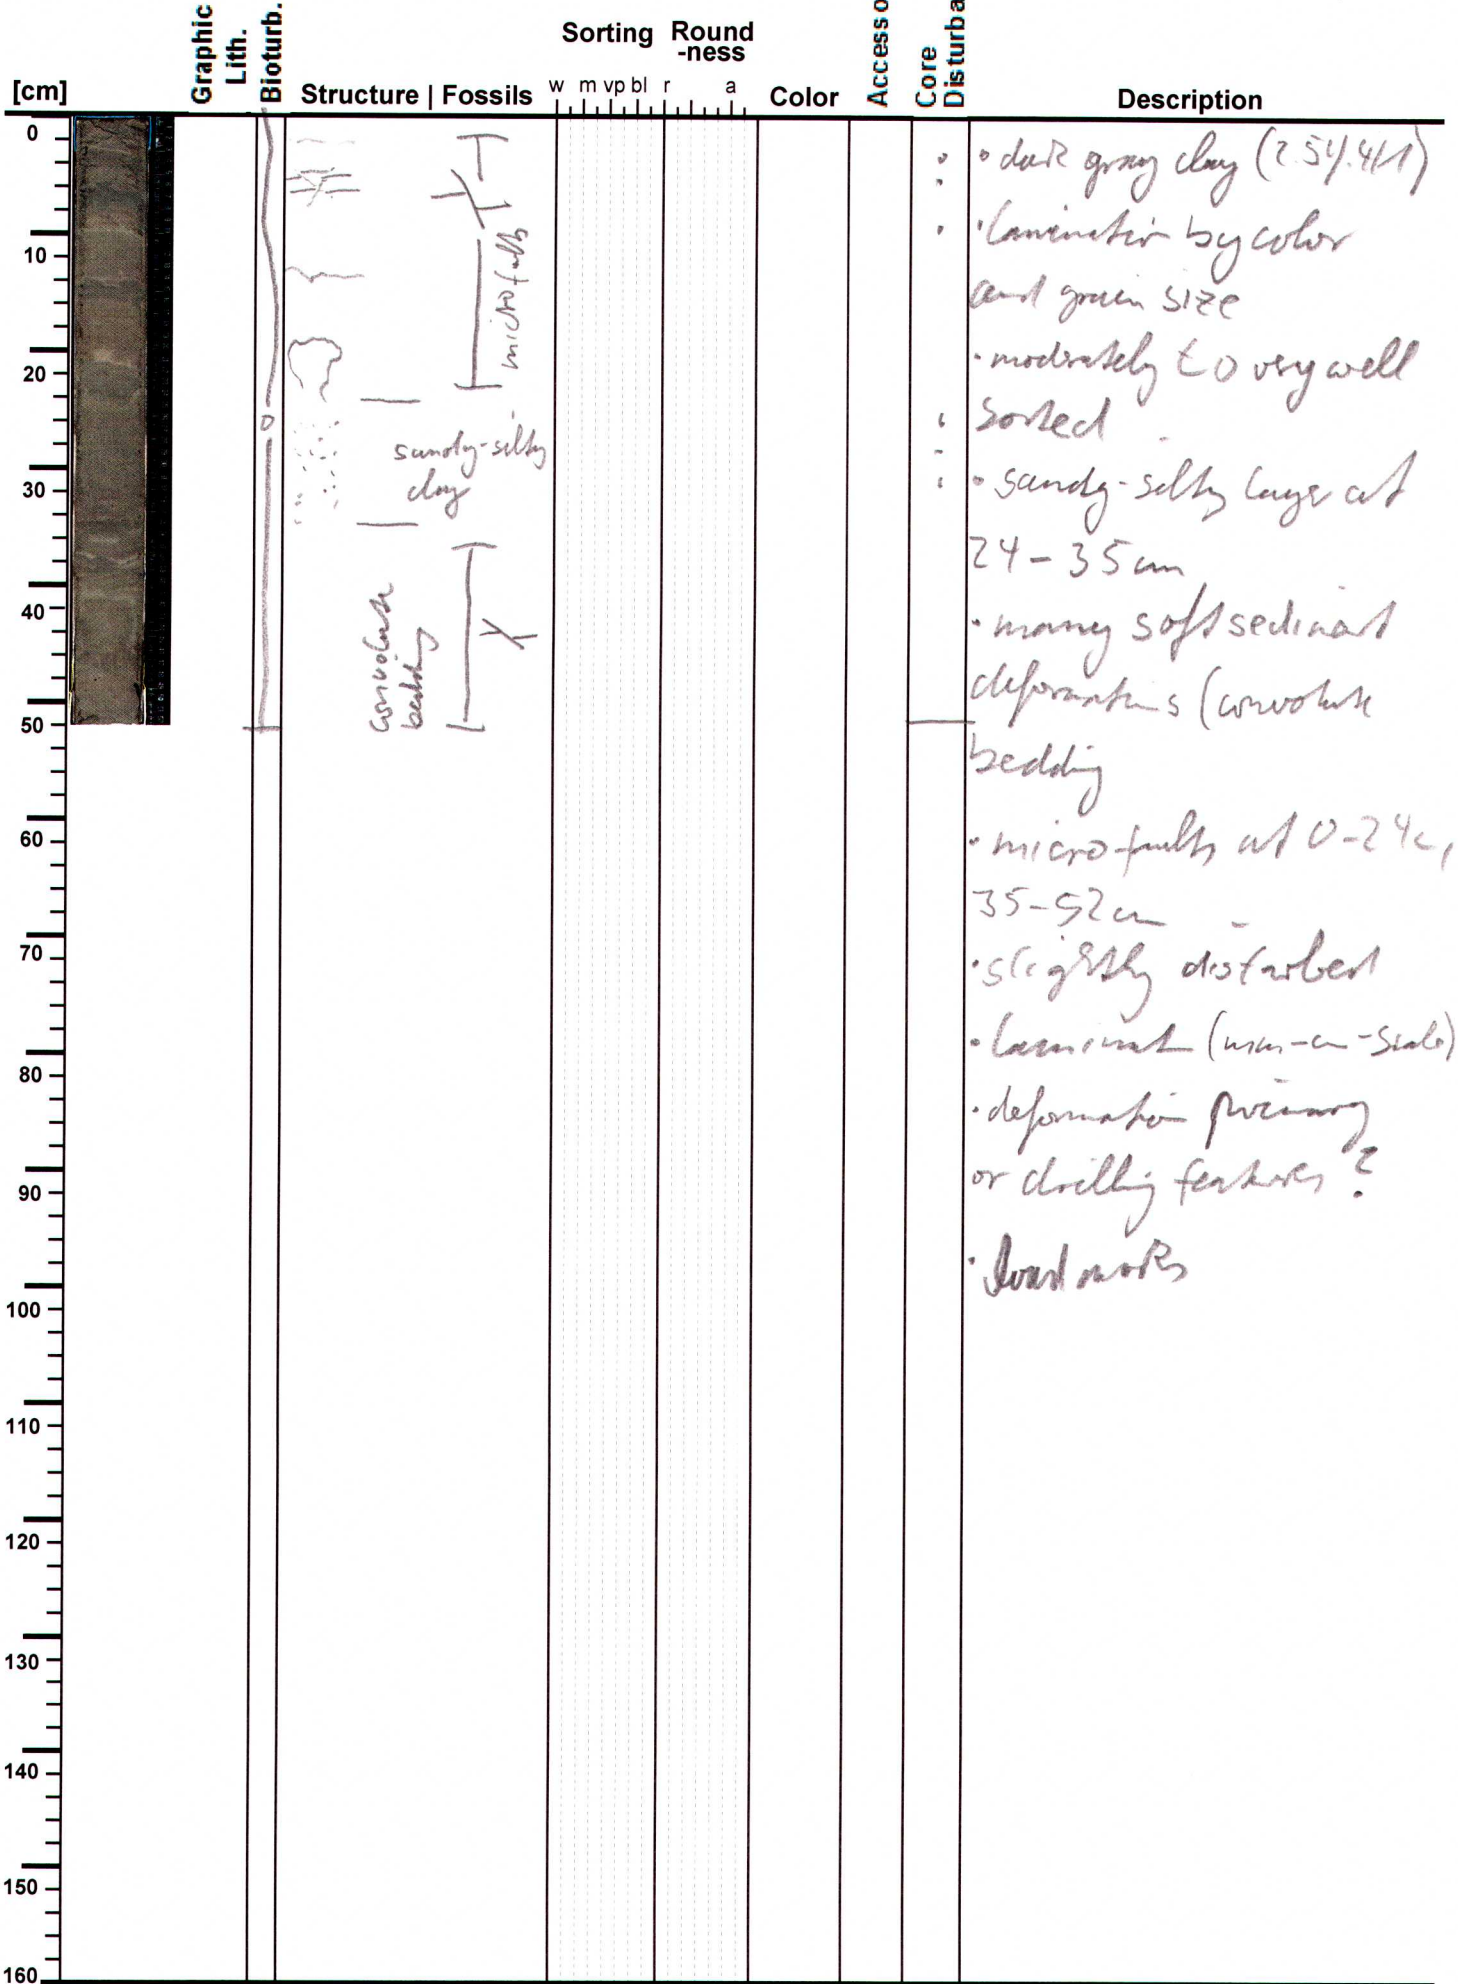 Graphic Lith.
Bioturb.
Accesso
Core Disturba
Sorting Round
-ness
w m vp bl r a
[cm] Structure | Fossils Color Description
0
10
20
30
40
50
60
70
80
90
100
110
120
130
140
150
160
microfalts
sandy-silty
clay
convolute
bedding
• dark gray clay (2.5Y.4/1)
• lamination by color
and grain size
• moderately to very well
sorted
• sandy-silty layer at
24-35cm
• many soft sediment
deformations (convolute
bedding
• micro-faults at 0-24c,
35-52cm
• slightly disturbed
• laminat (mm-cm-scale)
• deformation primary
or drilling features?
• load marks